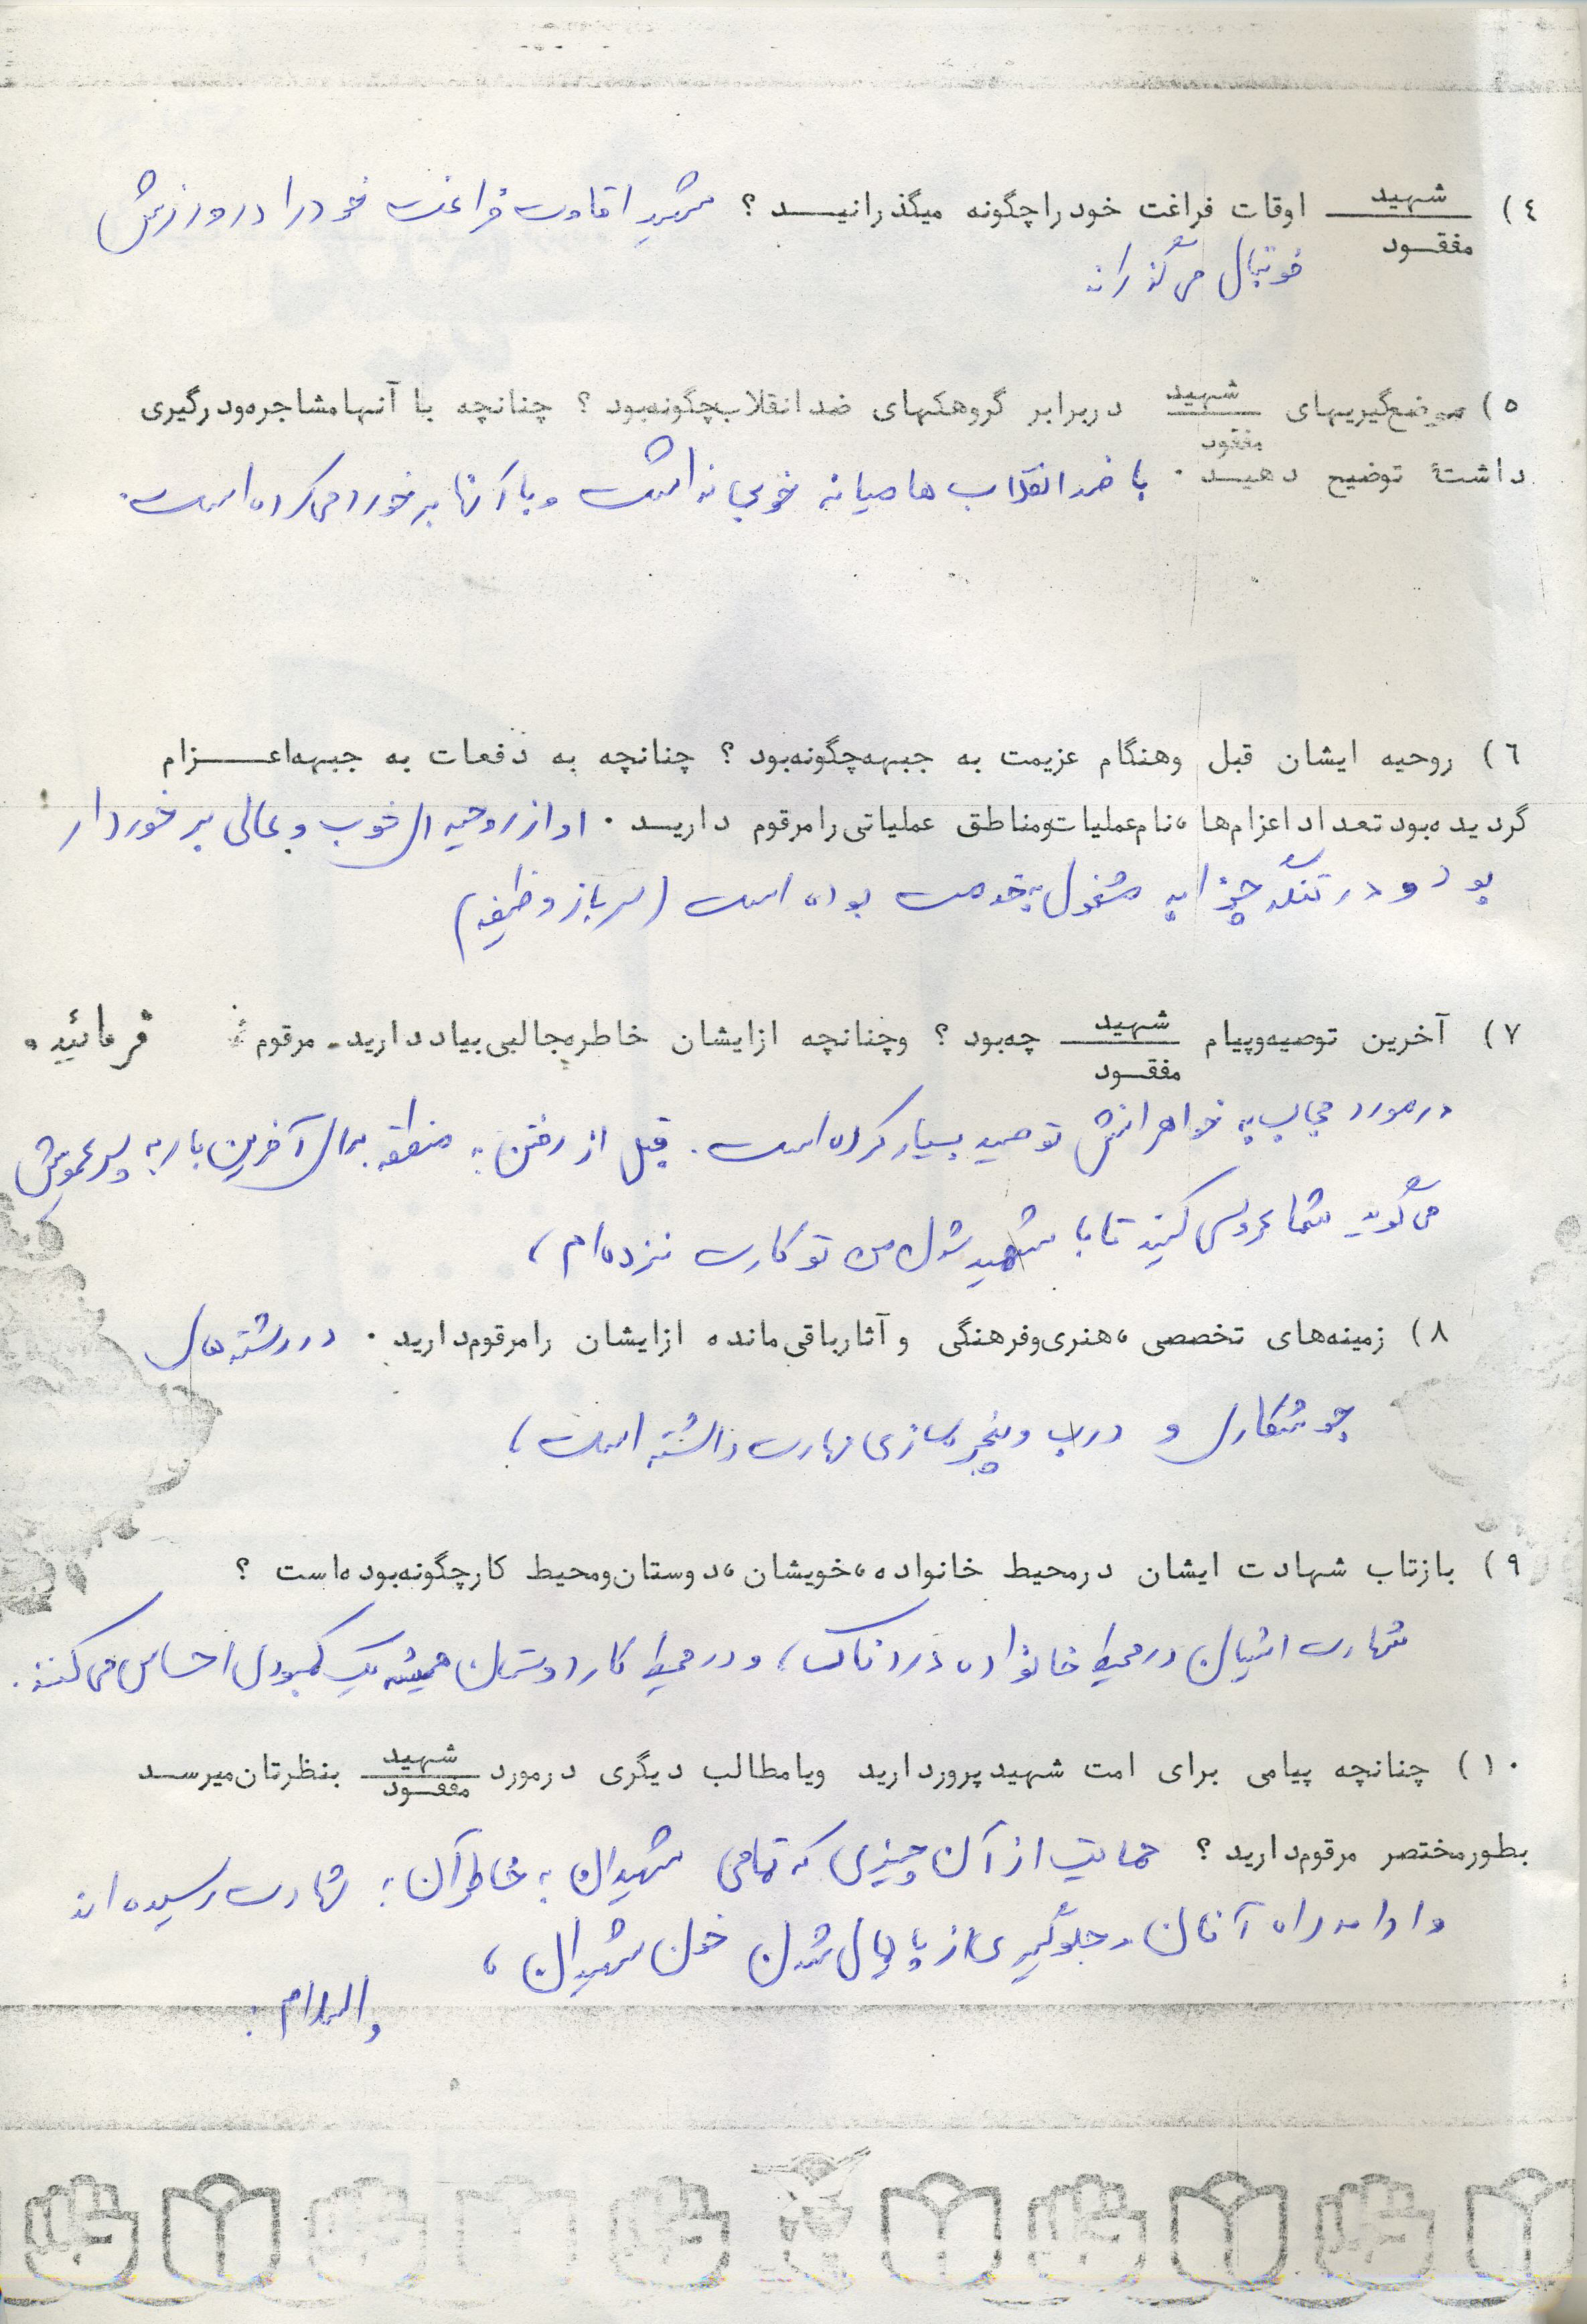 ٤) شهید / مفقود اوقات فراغت خود را چگونه میگذرانید ؟ شهید اوقات فراغت خود را در ورزش
فوتبال می گذراند
٥) موضعگیریهای شهید / مفقود در برابر گروهکهای ضد انقلاب چگونه بود ؟ چنانچه با آنها مشاجره و درگیری
داشتهٔ توضیح دهید . با ضد انقلاب ها میانه خوبی نداشت و با آنها برخورد می کرده است .
٦) روحیه ایشان قبل و هنگام عزیمت به جبهه چگونه بود ؟ چنانچه به دفعات به جبهه اعزام
گردیده بود تعداد اعزام ها ، نام عملیات و مناطق عملیاتی را مرقوم دارید . او از روحیه ای خوب و عالی برخوردار
بود و در تنگه چزابه مشغول به خدمت بوده است (سرباز وظیفه)
٧) آخرین توصیه و پیام شهید / مفقود چه بود ؟ و چنانچه از ایشان خاطره جالبی بیاد دارید - مرقوم فرمائید .
در مورد حجاب به خواهرانش توصیه بسیار کرده است . قبل از رفتن به منطقه برای آخرین بار به پسر عمویش
می گوید شما عروسی کنید تا با شهید شدن من تو کارت نزده ام ،
٨) زمینه های تخصصی ، هنری و فرهنگی و آثار باقی مانده از ایشان را مرقوم دارید . در رشته های
جوشکاری و درب و پنجره سازی مهارت داشته است ،
٩) بازتاب شهادت ایشان در محیط خانواده ، خویشان ، دوستان و محیط کار چگونه بوده است ؟
شهادت ایشان در محیط خانواده دردناک ، و در محیط کار دوستان همیشه یک کمبودی احساس می کنند .
١٠) چنانچه پیامی برای امت شهید پرور دارید و یا مطالب دیگری در مورد شهید / مفقود بنظرتان میرسد
بطور مختصر مرقوم دارید ؟ حمایت از آن چیزی که تمامی شهیدان به خاطر آن به شهادت رسیده اند
و ادامه راه آنان و جلوگیری از پایمال شدن خون شهیدان ،
والسلام .